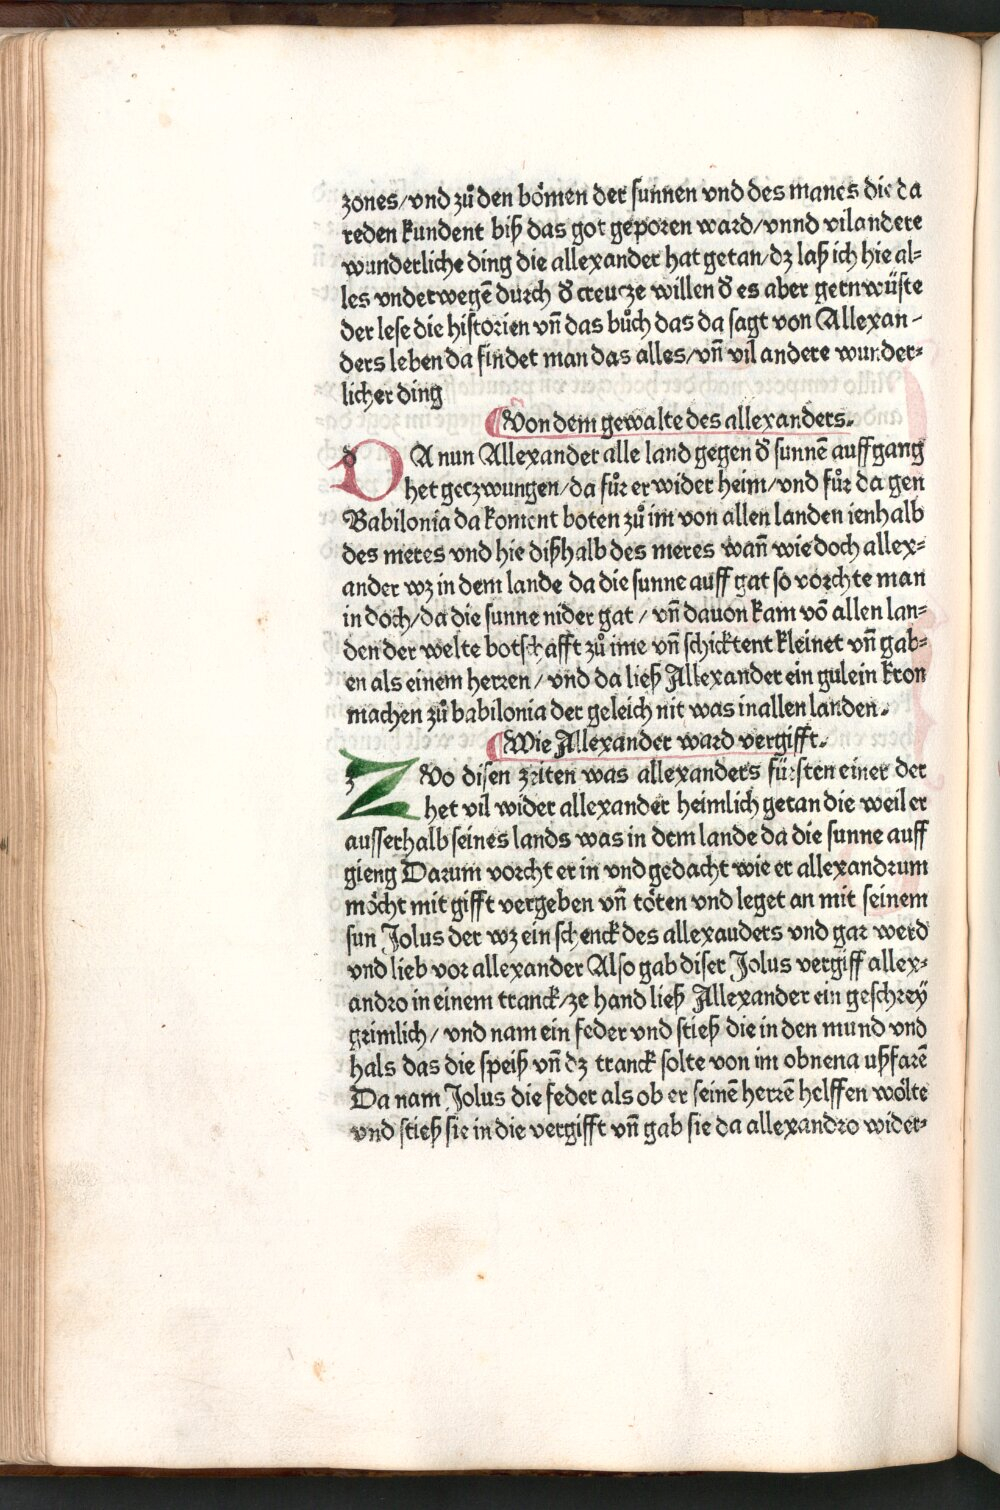 zones/vnd zů den bömen der sunnen vnd des manes die da
reden kundent biß das got geporen ward/vnnd vil andere
wunderliche ding die allexander hat getan/dz laß ich hie al-
les vnderwegē durch d̕ creucze willen d̕ es aber gern wüste
der lese die historien vn̄ das bůch das da sagt von Allexan-
ders leben da findet man das alles/vn̄ vil andere wunder-
licher ding
Von dem gewalte des allexanders.
DA nun Allexander alle land gegen d̕ sunnē auffgang
het geczwungen/da fůr er wider heim/vnd fůr da gen
Babilonia da koment boten zů im von allen landen ienhalb
des meres vnd hie dißhalb des meres wan̄ wie doch allex-
ander wz in dem lande da die sunne auff gat so vorchte man
in doch/da die sunne nider gat/vn̄ dauon kam vō allen lan-
den der welte botschafft zů ime vn̄ schicktent kleinet vn̄ gab-
en als einem herren/vnd da ließ Allexander ein gulein kron
machen zů babilonia der geleich nit was in allen landen.
Wie Allexander ward vergifft.
ZVo disen zeiten was allexanders fürsten einer der
het vil wider allexander heimlich getan die weil er
ausserhalb seines lands was in dem lande da die sunne auff
gieng Darum vorcht er in vnd gedacht wie er allexandrum
möcht mit gifft vergeben vn̄ töten vnd leget an mit seinem
sun Jolus der wz ein schenck des allexauders vnd gar werd
vnd lieb vor allexander Also gab diser Jolus vergiff allex-
andro in einem tranck/ze hand ließ Allexander ein geschrey
grimlich/vnd nam ein feder vnd stieß die in den mund vnd
hals das die speiß vn̄ dz tranck solte von im obnena ußfarē
Da nam Jolus die feder als ob er seinē herrē helffen wölte
vnd stieß sie in die vergifft vn̄ gab sie da allexandro wider-